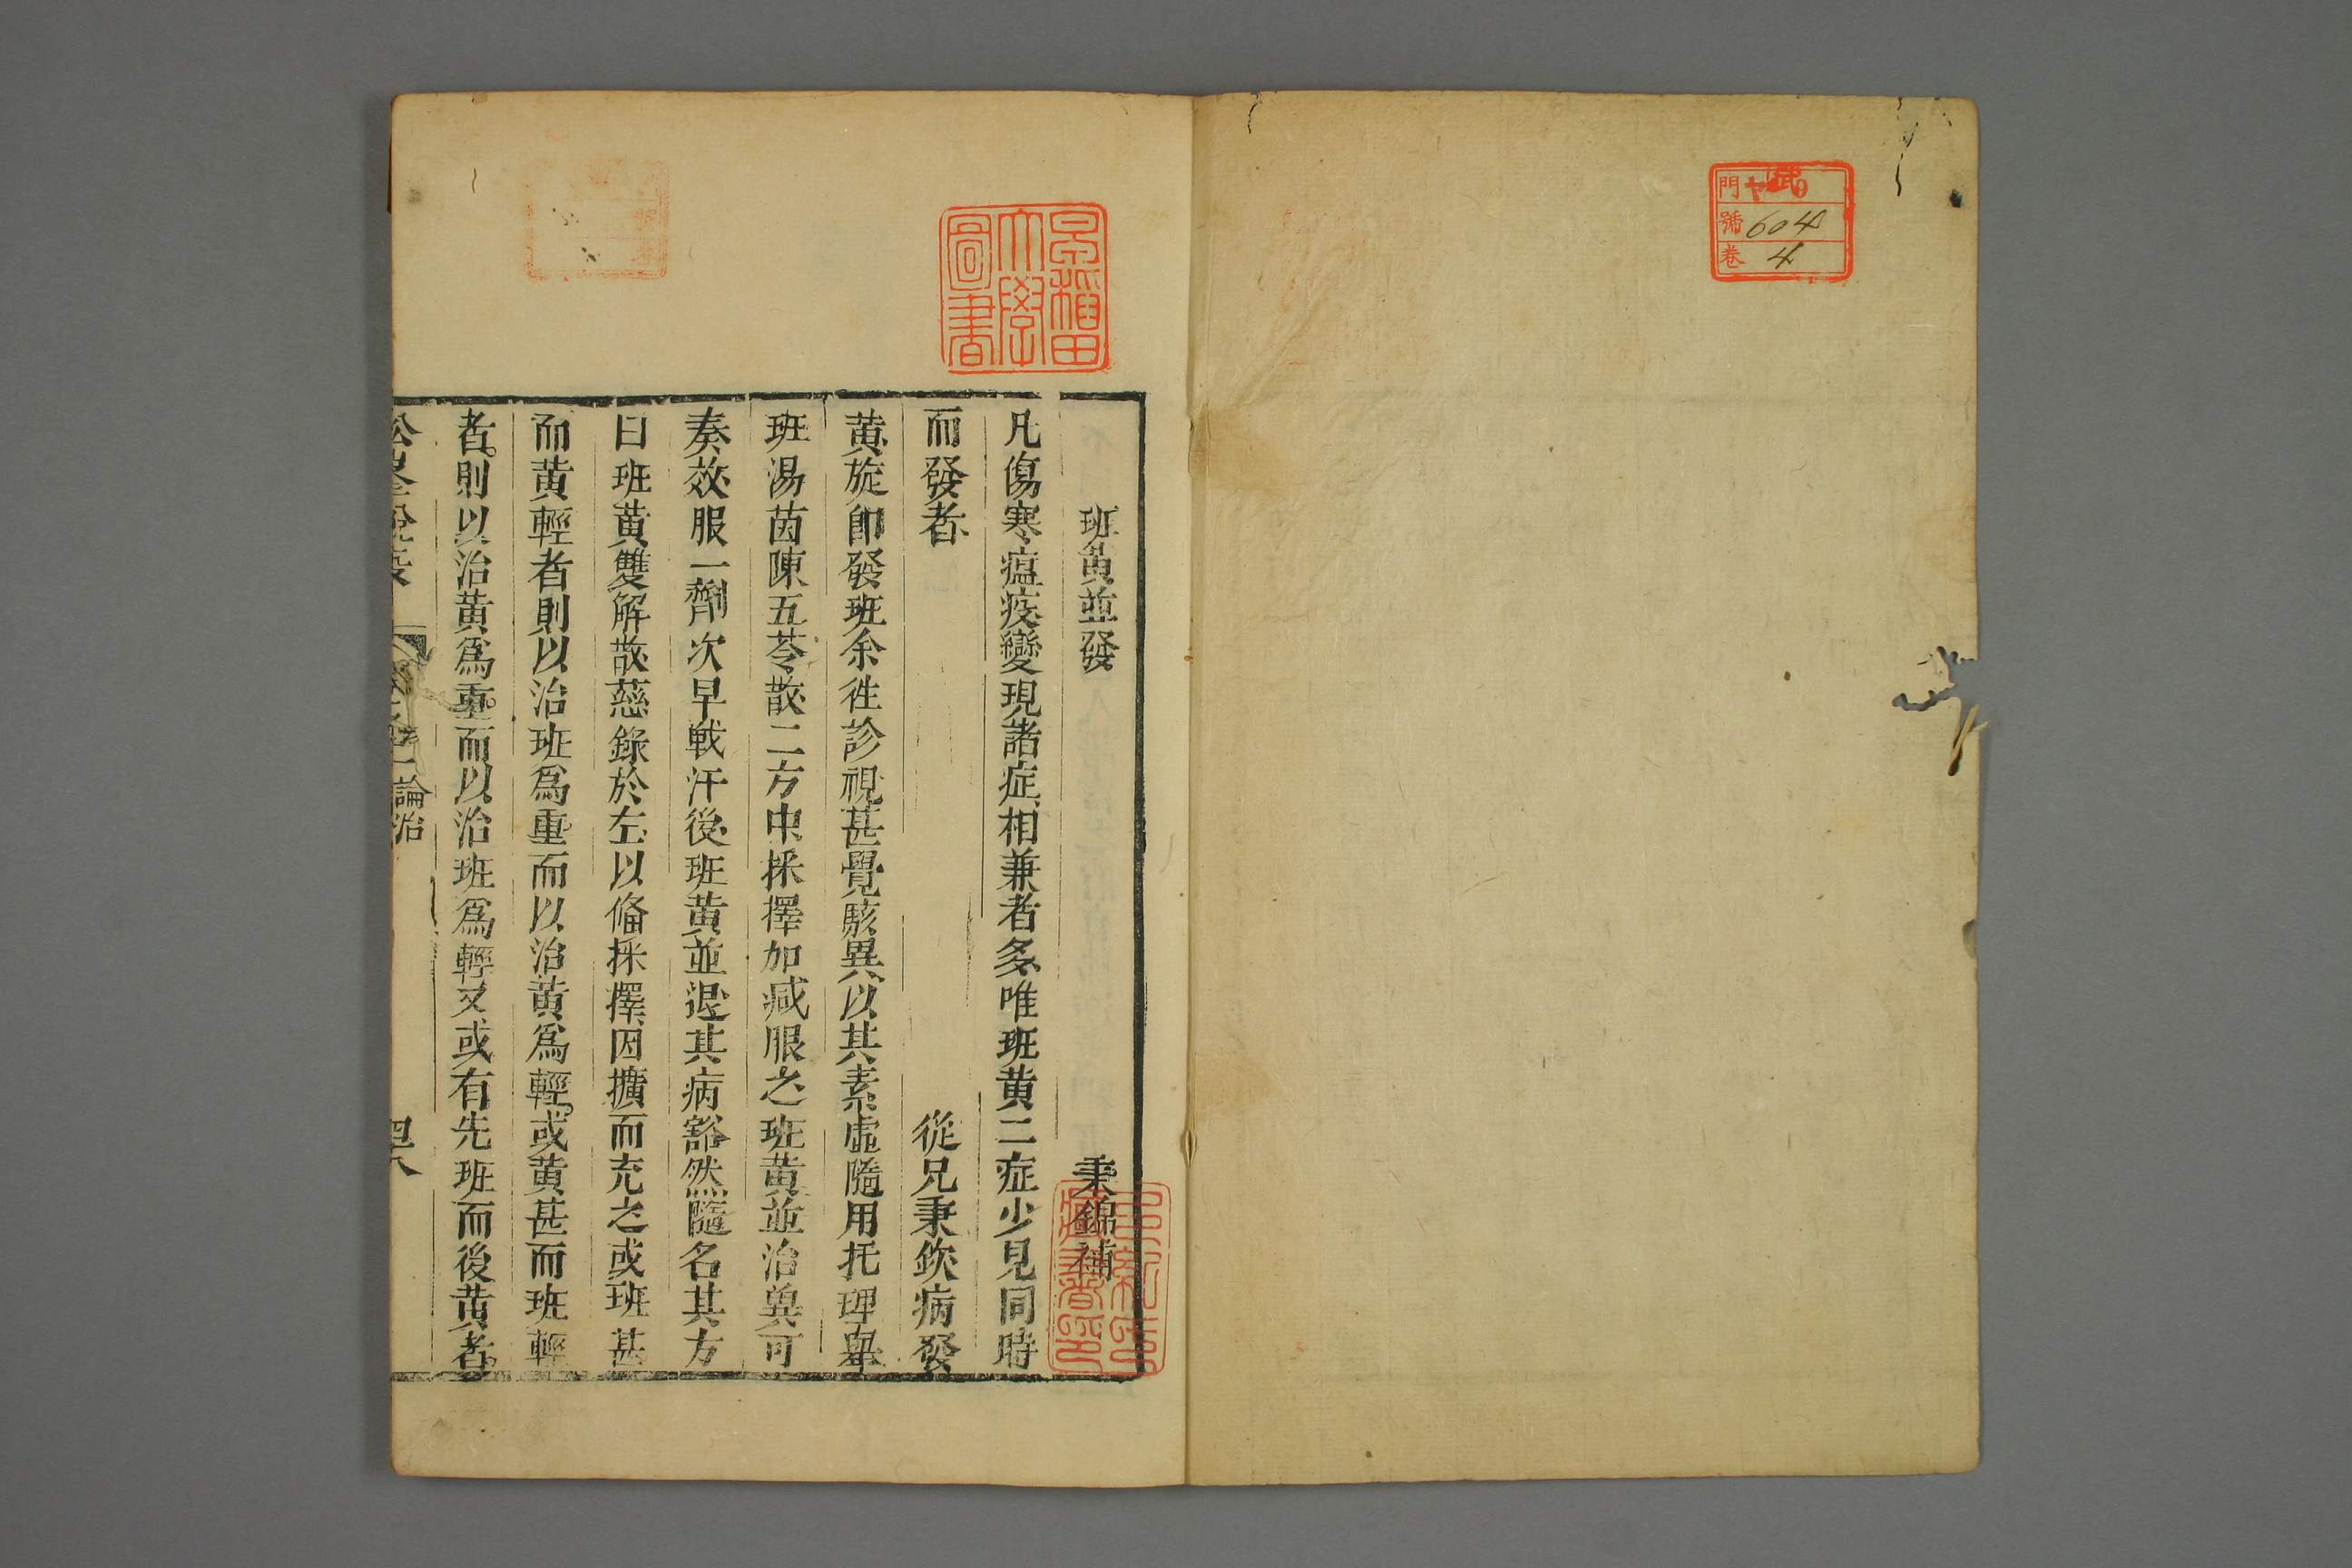 門 ヤ
號 604
卷 4
早稲田
大學
圖書
班黃並發 秉錦補
凡傷寒瘟疫變現諸症相兼者多唯班黃二症少見同時
而發者 從兄秉欽病發
黃旋卽發班余徃診視甚覺駭異以其素虛隨用托理舉
班湯茵陳五苓散二方中採擇加减服之班黃並治兾可
奏效服一劑次早戰汗後班黃並退其病豁然隨名其方
曰班黃雙解散慈錄於左以俻採擇因擴而充之或班甚
而黃輕者則以治班爲重而以治黃爲輕或黃甚而班輕
者則以治黃爲重而以治班爲輕又或有先班而後黃者
松峯說疫 卷之 論治 四八